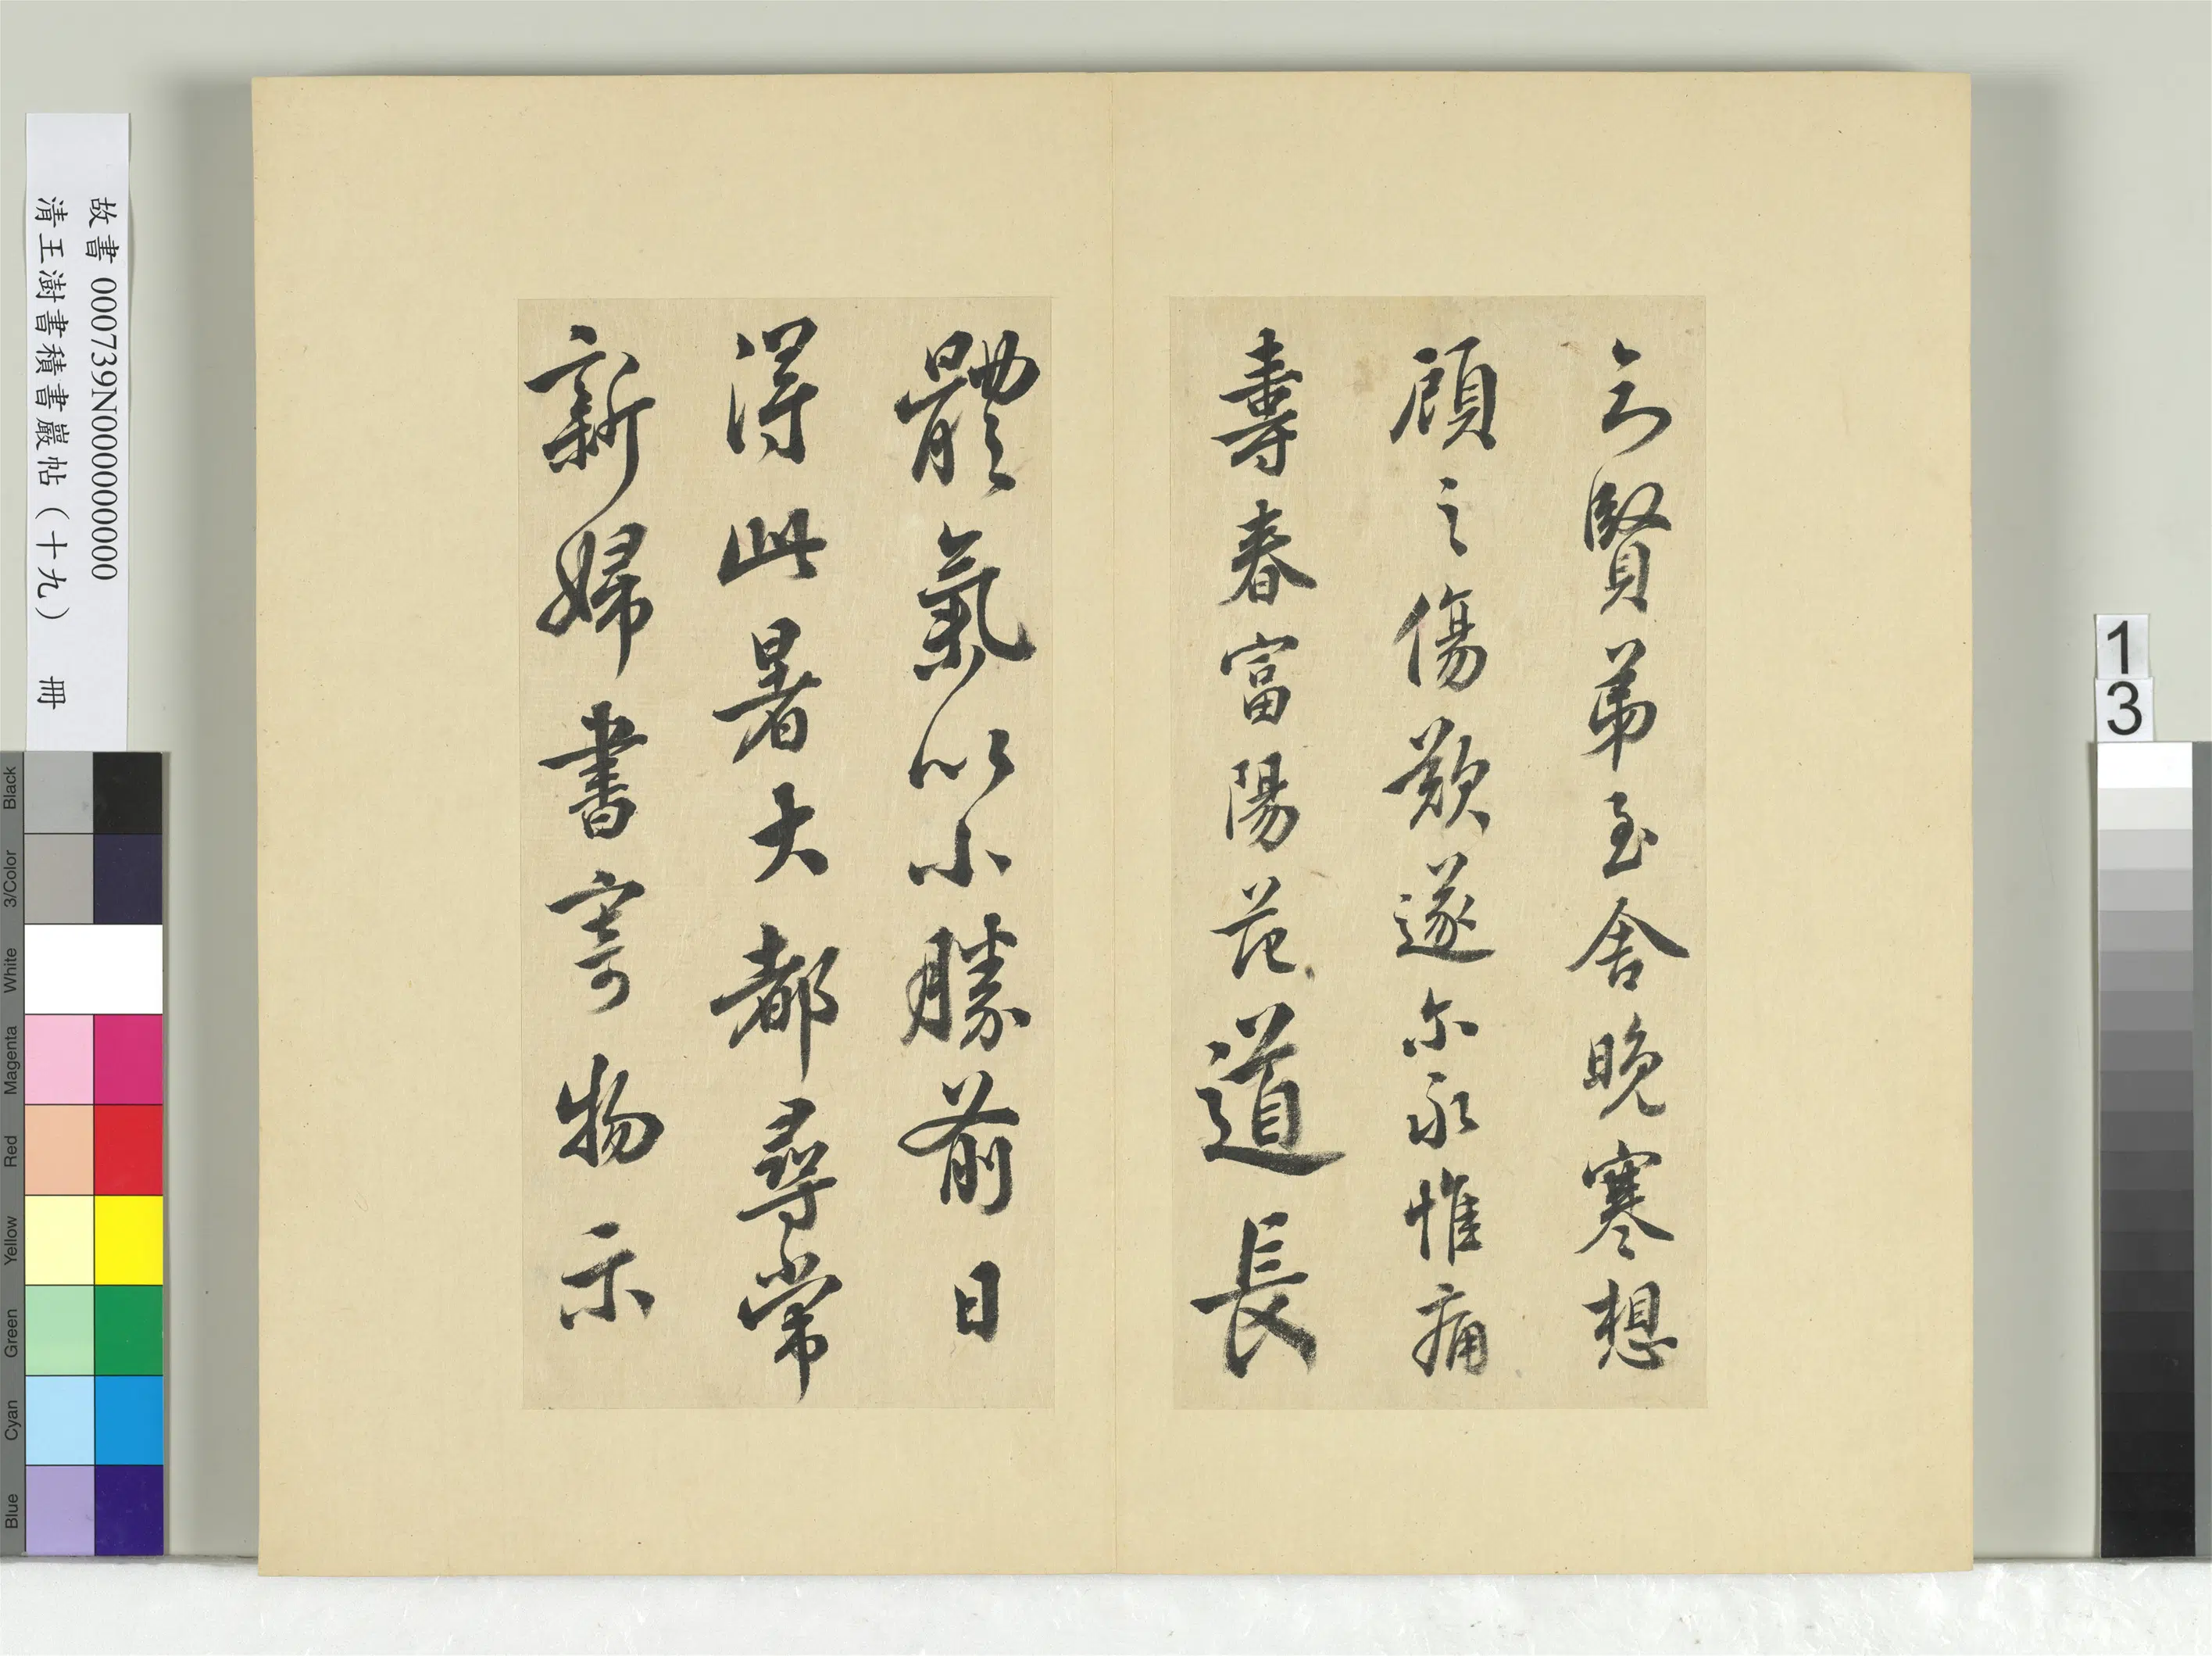 𠂉賢弟至舍晚寒想
顧之傷歎遂尔永惟痛
壽春富陽范道長
體氣以小勝前日
得此暑大都尋常
新婦書寄物示
故書 000739N000000000
清王澍書積書巖帖(十九) 冊
1
3
Black
3/Color
White
Magenta
Red
Yellow
Green
Cyan
Blue